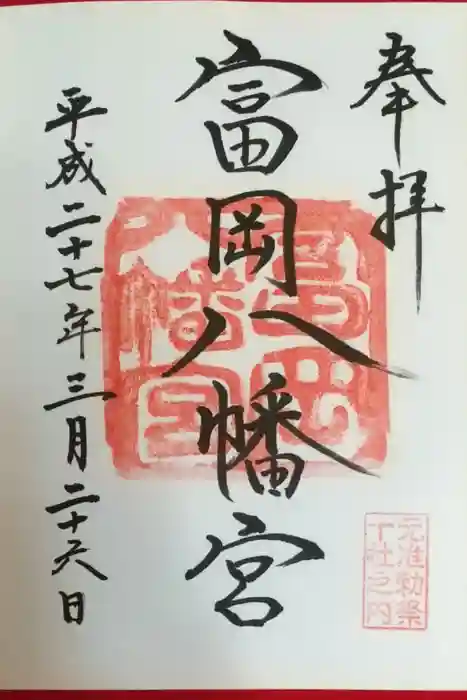 奉拝
富岡八幡宮
平成二十七年三月二十六日
富岡八幡宮
元准勅祭
十社之内